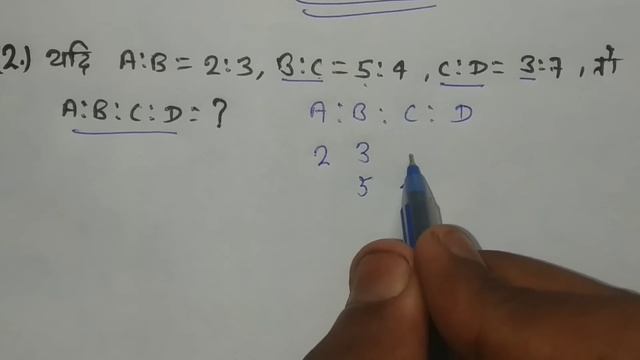 2.) यदि A:B = 2:3, B:C = 5:4, C:D = 3:7, तो
A:B:C:D = ?
A : B : C : D
2 3
5